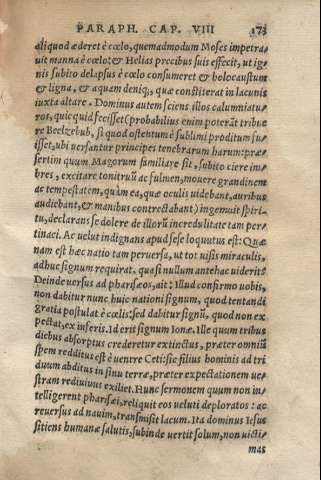 PARAPH. CAP. VIII 173
aliquod æderet è cœlo, quemadmodum Moses impetra⸗
uit manna è cœlo: & Helias precibus suis effecit, ut ig⸗
nis subito delapsus è cœlo consumeret & holocaustum
& ligna, & aquam deniq;, quæ constiterat in lacunis
iuxta altare. Dominus autem sciens illos calumniatu⸗
ros, quicquid fecisset (probabilius enim poterãt tribue
re Beelzebub, si quod ostentum è sublimi proditum fu⸗
isset, ubi uersantur principes tenebrarum harum: præ⸗
sertim quum Magorum familiare sit, subito ciere im⸗
bres, excitare tonitruũ ac fulmen, mouere grandinem
ac tempestatem, quàm ea, quæ oculis uidebant, auribus
audiebant, & manibus contrectabant) ingemuit spiri⸗
tu, declarans se dolere de illorũ incredulitate tam per⸗
tinaci. Ac uelut indignans apud sese loquutus est: Quæ
nam est hæc natio tam peruersa, ut tot uisis miraculis,
adhuc signum requirat, quasi nullum antehac uiderit?
Deinde uersus ad pharisæos, ait: Illud confirmo uobis,
non dabitur nunc huic nationi signum, quod tentandi
gratia postulat è cœlis: sed dabitur signũ, quod non ex
pectat, ex inferis. Id erit signum Ionæ. Ille quum tribus
diebus absorptus crederetur extinctus, præter omniũ
spem redditus est è uentre Ceti: sic filius hominis ad tri
duum abditus in sinu terræ, præter expectationem ue⸗
stram rediuiuus exiliet. Hunc sermonem quum non in⸗
telligerent pharisæi, reliquit eos ueluti deploratos: ac
reuersus ad nauim, transmisit lacum. Ita dominus Iesus
sitiens humanæ salutis, subinde uertit solum, non uicti⸗
mas